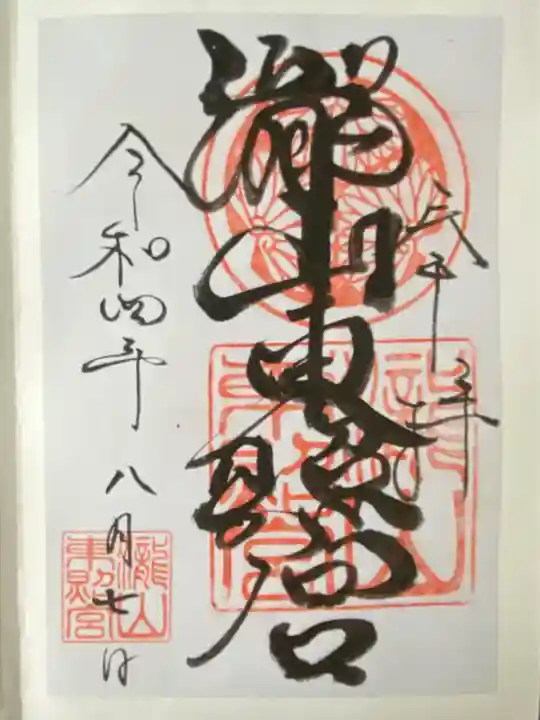 瀧山東照宮
令和四年八月七日
瀧山
東照宮